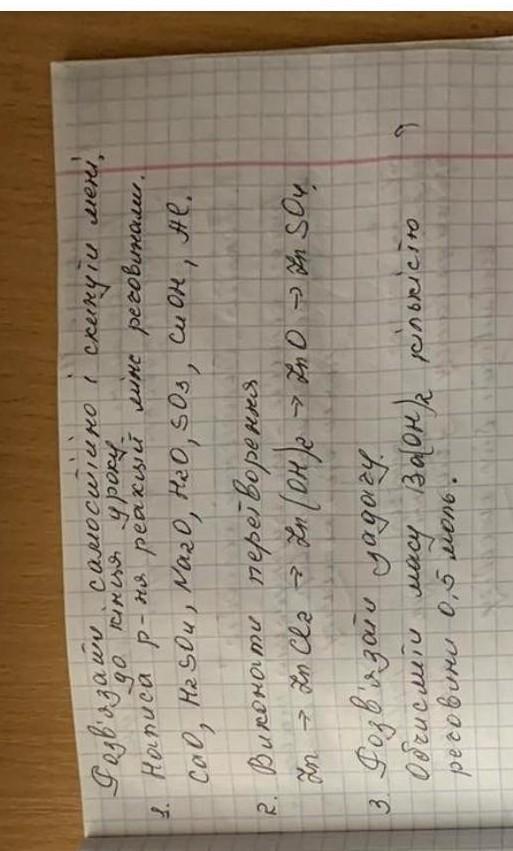 Розв'язати самостійно і скинути мені,
до кінця уроку
1. Написа р-ня реакцій між речовинами.
CaO, H2SO4, Na2O, H2O, SO3, CuOH, Al.
2. Виконати перетворення
Zn → ZnCl2 → Zn(OH)2 → ZnO → ZnSO4
3. Розв'язати задачу
Обчисліть масу Ba(OH)2 кількістю
речовини 0,5 моль.